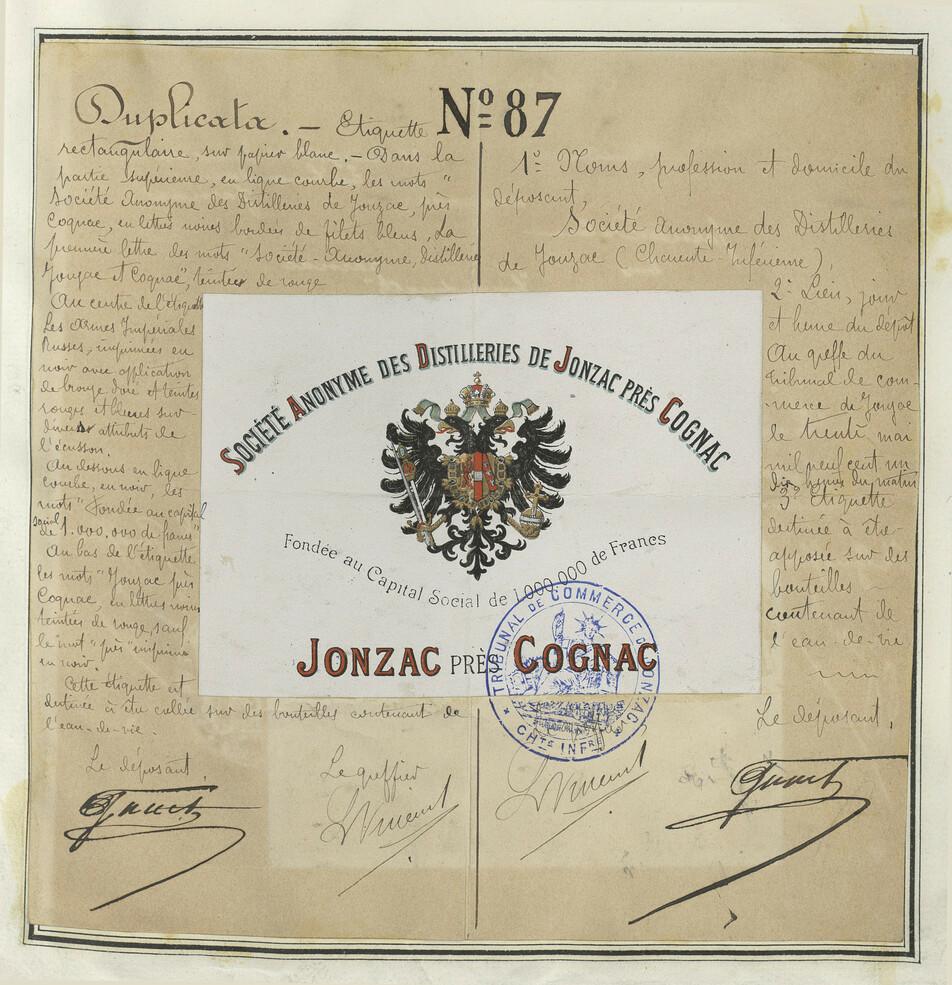 Duplicata. — Etiquette
rectangulaire, sur papier blanc. — Dans la
partie supérieure, en ligne courbe, les mots "
Société Anonyme des Distilleries de Jonzac, près
Cognac, en lettres noires bordées de filets bleus, La
première lettre des mots "Société-Anonyme, distilleries
Jonzac et Cognac", teintées de rouge
Au centre de l'étiquette
Les Armes Impériales
Russes, imprimées en
noir avec application
de bronze doré et teintes
rouges et bleues sur
divers attributs de
l'écusson.
Au dessous en ligne
courbe, en noir, les
mots "Fondée au capital
social de 1.000.000 de francs"
Au bas de l'étiquette
les mots "Jonzac près
Cognac, en lettres noires
teintées de rouge, sauf
le mot "près" imprimé
en noir.
Cette étiquette est
destinée à être collée sur des bouteilles contenant de
l'eau-de-vie.
Le déposant
Le greffier
LVincent
Nº 87
1º Noms, profession et domicile du
déposant,
Société anonyme des Distilleries
de Jonzac (Charente-Inférieure),
2º Lieu, jour
et heure du dépôt
Au greffe du
tribunal de com-
merce de Jonzac
le trente mai
mil neuf cent un
dix heures du matin
3º Etiquette
destinée à être
apposée sur des
bouteilles
contenant de
l'eau-de-vie
Le déposant,
LVincent
SOCIÉTÉ ANONYME DES DISTILLERIES DE JONZAC PRÈS COGNAC
Fondée au Capital Social de 1.000.000 de Francs
JONZAC PRÈS COGNAC
TRIBUNAL DE COMMERCE DE JONZAC
CHTE INFRE